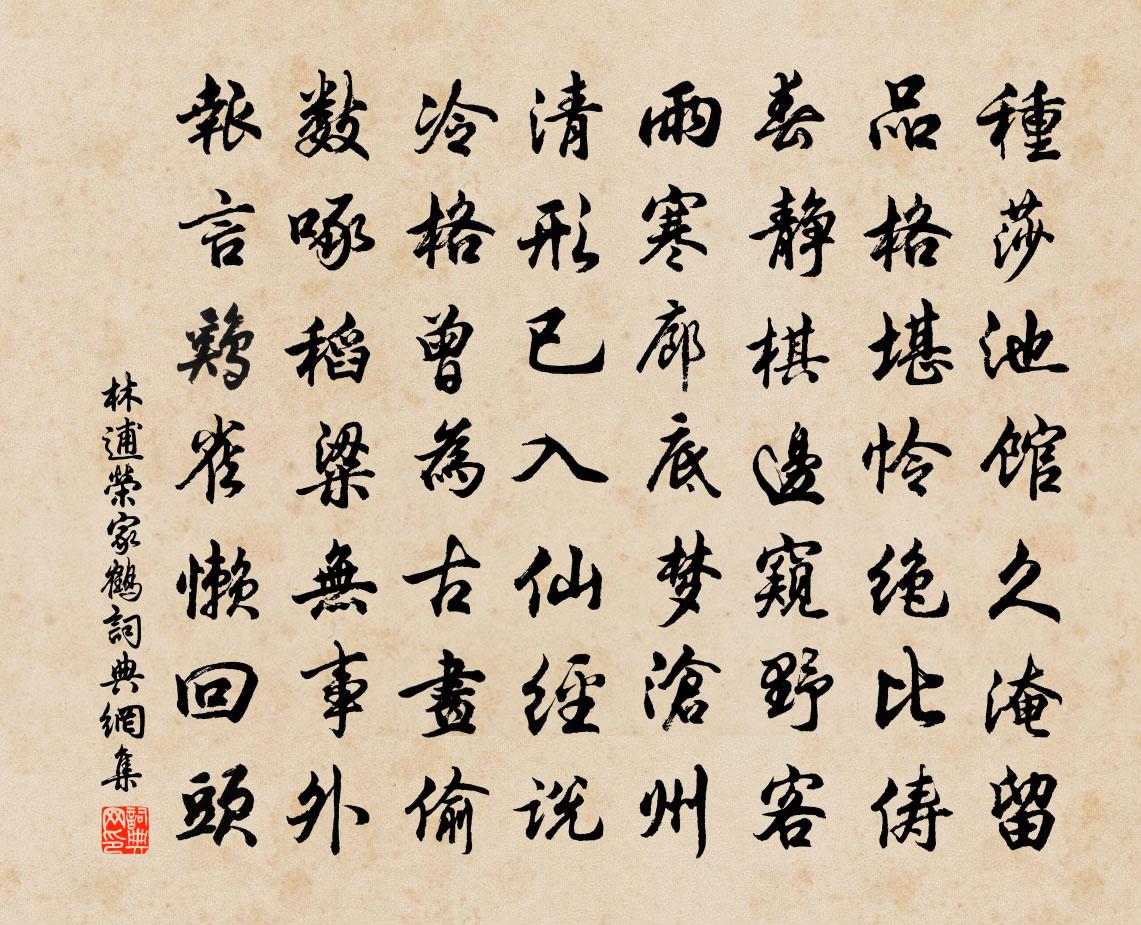 種莎池館久淹留
品格堪怜绝比俦
春靜棋邊窺野客
雨寒廊底梦滄州
清形已入仙經说
冷格曾為古畫偷
數啄稻粱無事外
報言鷄雀懒回頭
林逋榮家鶴詞典網集
詞典网印